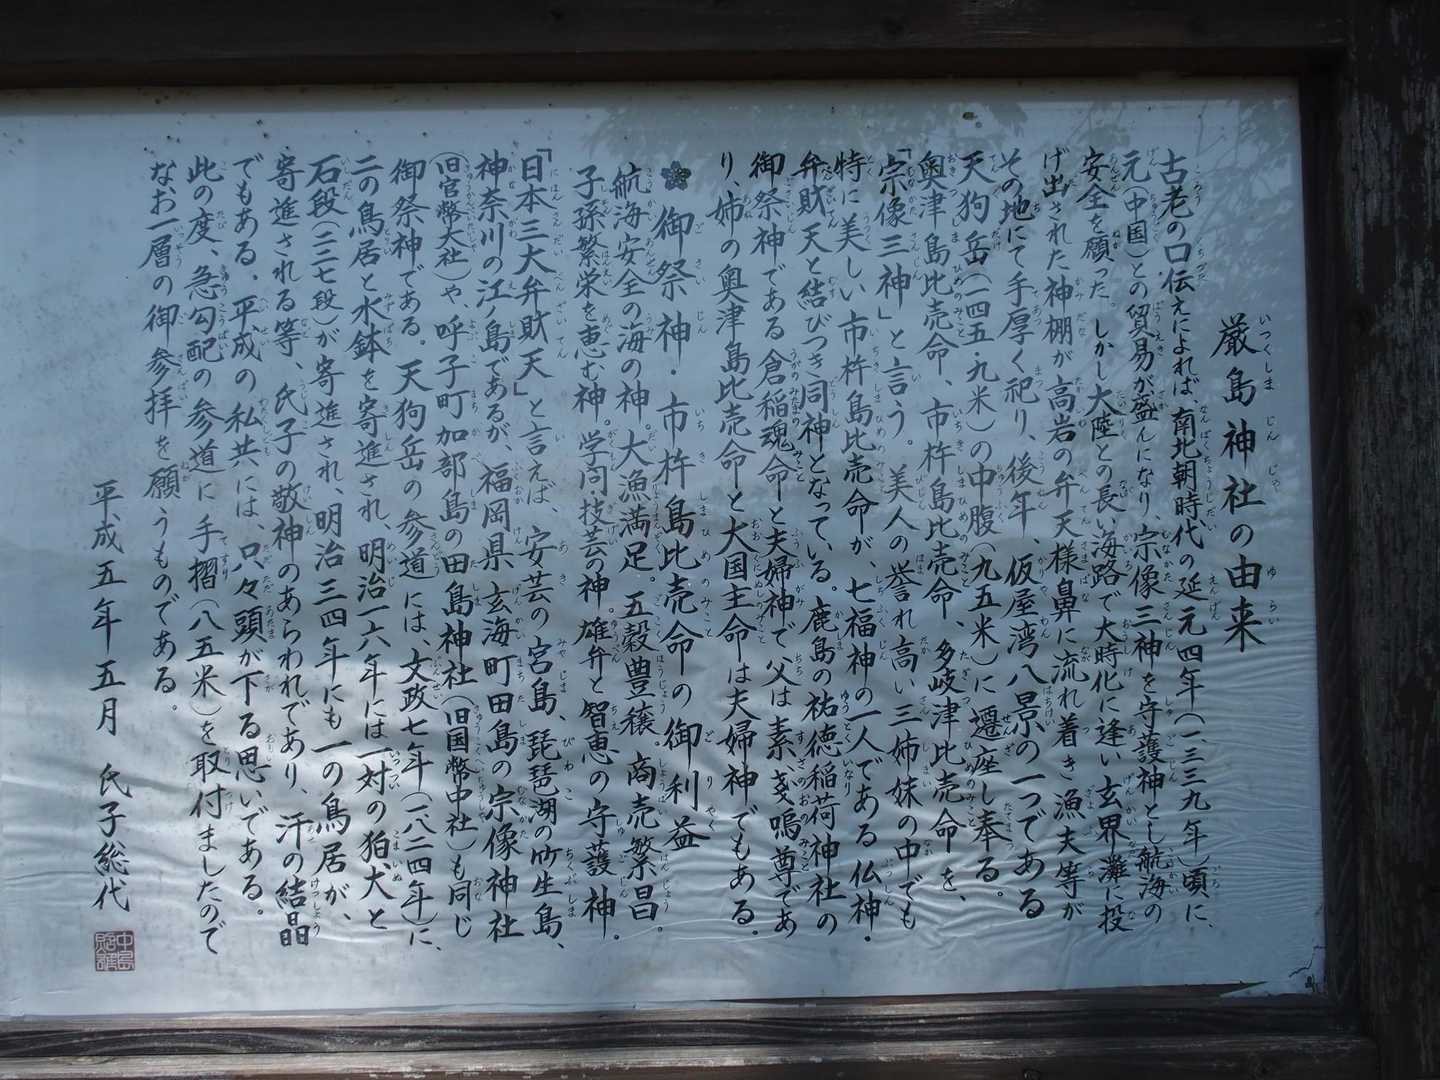 厳島神社の由来
古老の口伝えによれば、南北朝時代の延元四年(一三三九年)頃に、
元(中国)との貿易が盛んになり、宗像三神を守護神とし航海の
安全を願った。しかし大陸との長い海路で大時化に逢い玄界灘に投
げ出された神棚が高岩の弁天様鼻に流れ着き漁夫等が
その地にて手厚く祀り、後年、仮屋湾八景の一つである
天狗岳(一四五・九米)の中腹(九五米)に遷座し奉る。
奥津島比売命、市杵島比売命、多岐津比売命を、
「宗像三神」と言う。美人の誉れ高い三姉妹の中でも
特に美しい市杵島比売命が、七福神の一人である仏神・
弁財天と結びつき同神となっている。鹿島の祐徳稲荷神社の
御祭神である倉稲魂命と夫婦神で父は素戔嗚尊であ
り、姉の奥津島比売命と大国主命は夫婦神でもある。
御祭神・市杵島比売命の御利益
航海安全の海の神。大漁満足。五穀豊穣。商売繁昌。
子孫繁栄を恵む神。学問技芸の神。雄弁と智恵の守護神。
「日本三大弁財天」と言えば、安芸の宮島、琵琶湖の竹生島、
神奈川の江ノ島であるが、福岡県玄海町田島の宗像神社
(旧官幣大社)や、呼子町加部島の田島神社(旧国幣中社)も同じ
御祭神である。天狗岳の参道には、文政七年(一八二四年)に、
二の鳥居と水鉢を寄進され、明治一六年には一対の狛犬と
石段(三三七段)が寄進され、明治三四年にも一の鳥居が、
寄進される等、氏子の敬神のあらわれであり、汗の結晶
でもある。平成の私共には、只々頭が下る思いである。
此の度、急勾配の参道に手摺(八五米)を取付ましたので
なお一層の御参拝を願うものである。
平成五年五月 氏子総代